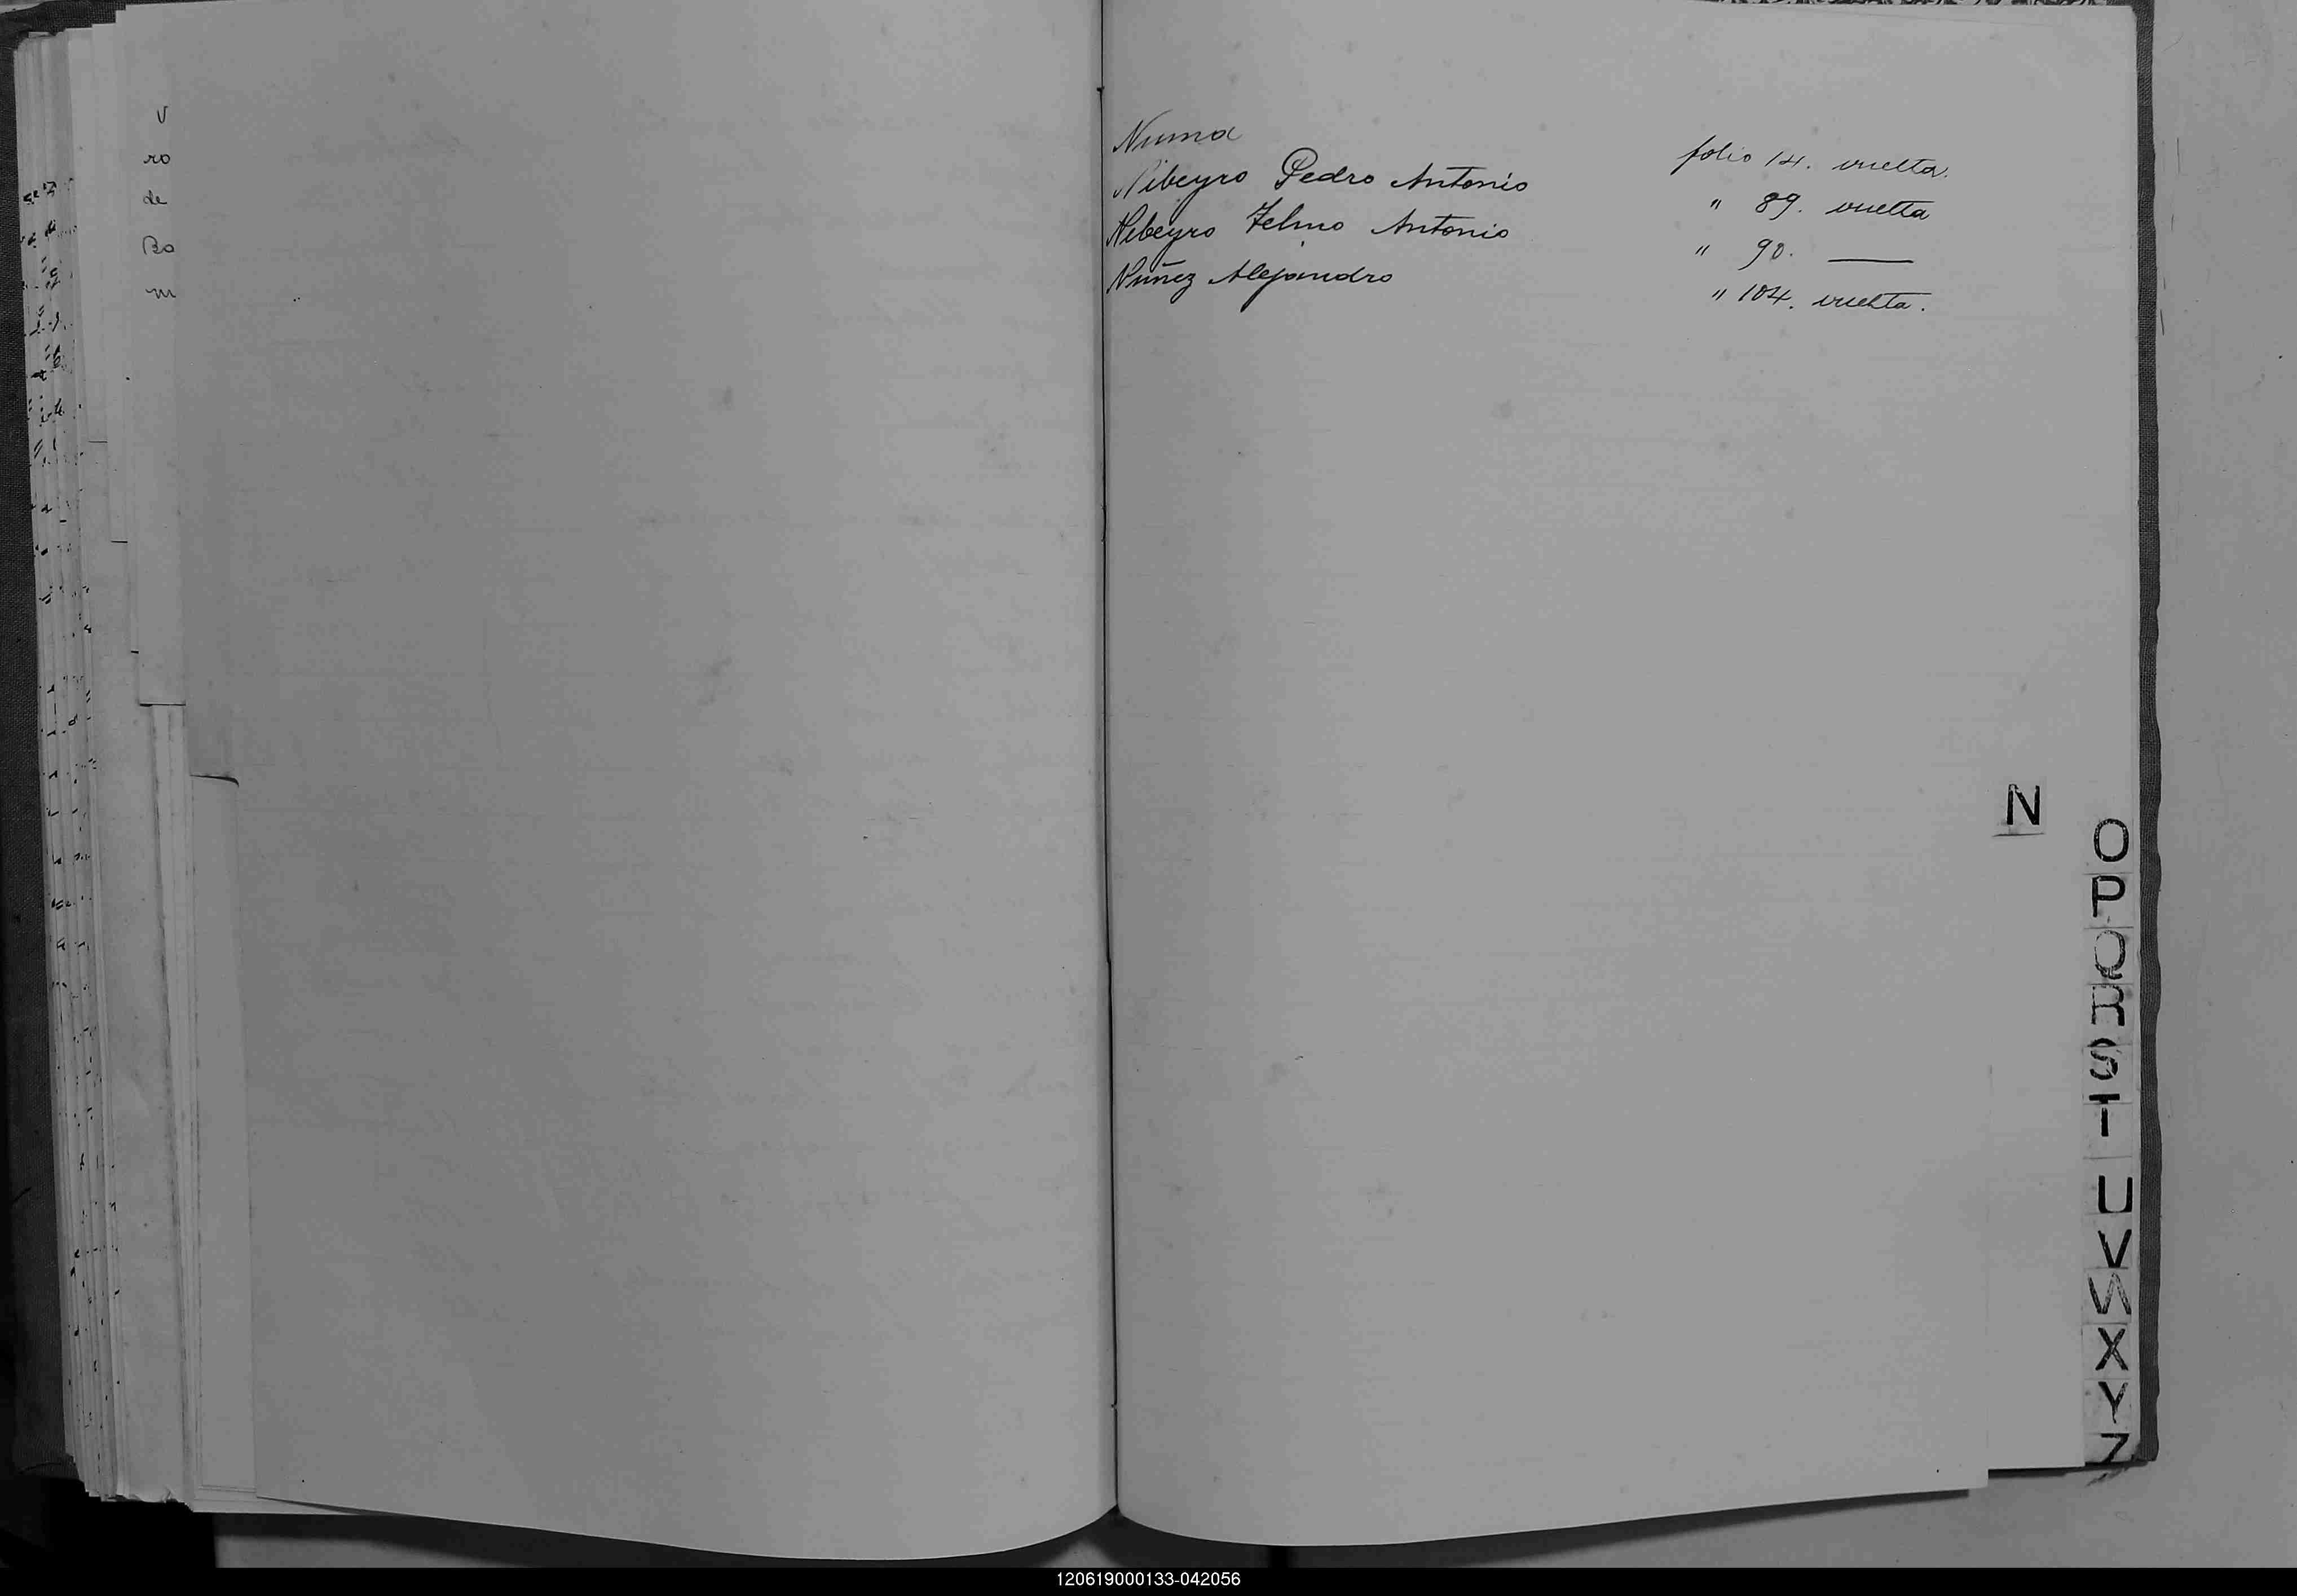 V
ro
de
Bo
m
Numa folio 14. vuelta.
Nibeyro Pedro Antonio " 89. vuelta
Nibeyro Telmo Antonio " 90. ——
Nuñez Alejandro " 104. vuelta.
N
O
P
Q
R
S
T
U
V
W
X
Y
Z
120619000133-042056